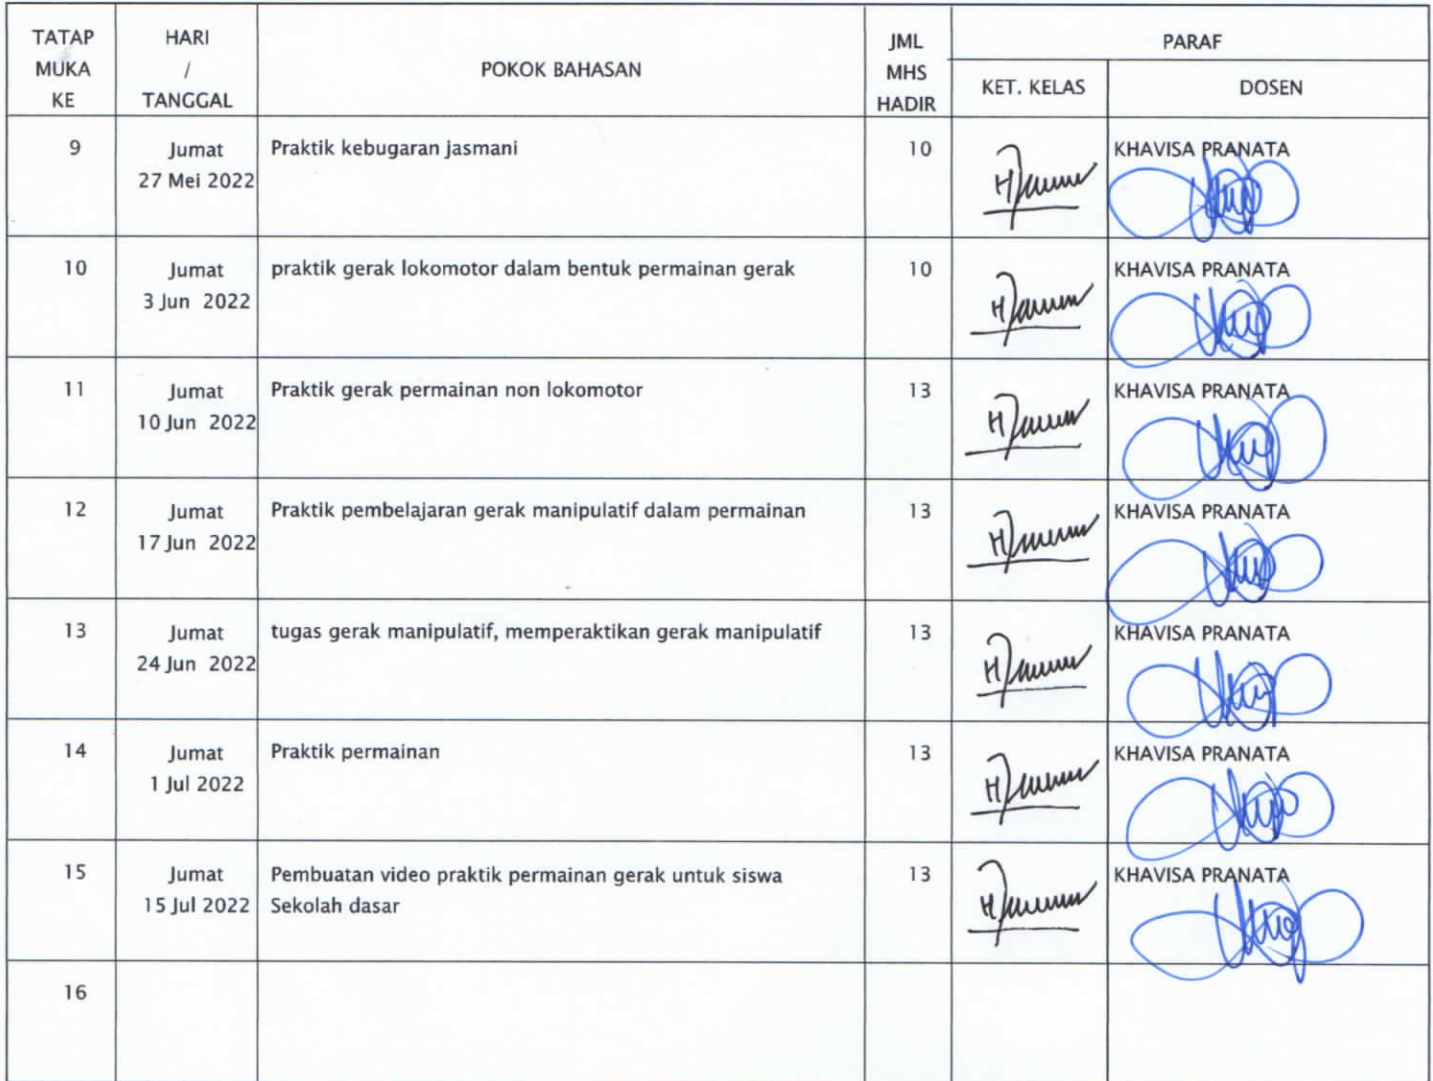 TATAP MUKA KE
HARI / TANGGAL
POKOK BAHASAN
JML MHS HADIR
PARAF
KET. KELAS
DOSEN
9
Jumat
27 Mei 2022
Praktik kebugaran jasmani
10
KHAVISA PRANATA
10
Jumat
3 Jun 2022
praktik gerak lokomotor dalam bentuk permainan gerak
10
KHAVISA PRANATA
11
Jumat
10 Jun 2022
Praktik gerak permainan non lokomotor
13
KHAVISA PRANATA
12
Jumat
17 Jun 2022
Praktik pembelajaran gerak manipulatif dalam permainan
13
KHAVISA PRANATA
13
Jumat
24 Jun 2022
tugas gerak manipulatif, memperaktikan gerak manipulatif
13
KHAVISA PRANATA
14
Jumat
1 Jul 2022
Praktik permainan
13
KHAVISA PRANATA
15
Jumat
15 Jul 2022
Pembuatan video praktik permainan gerak untuk siswa
Sekolah dasar
13
KHAVISA PRANATA
16